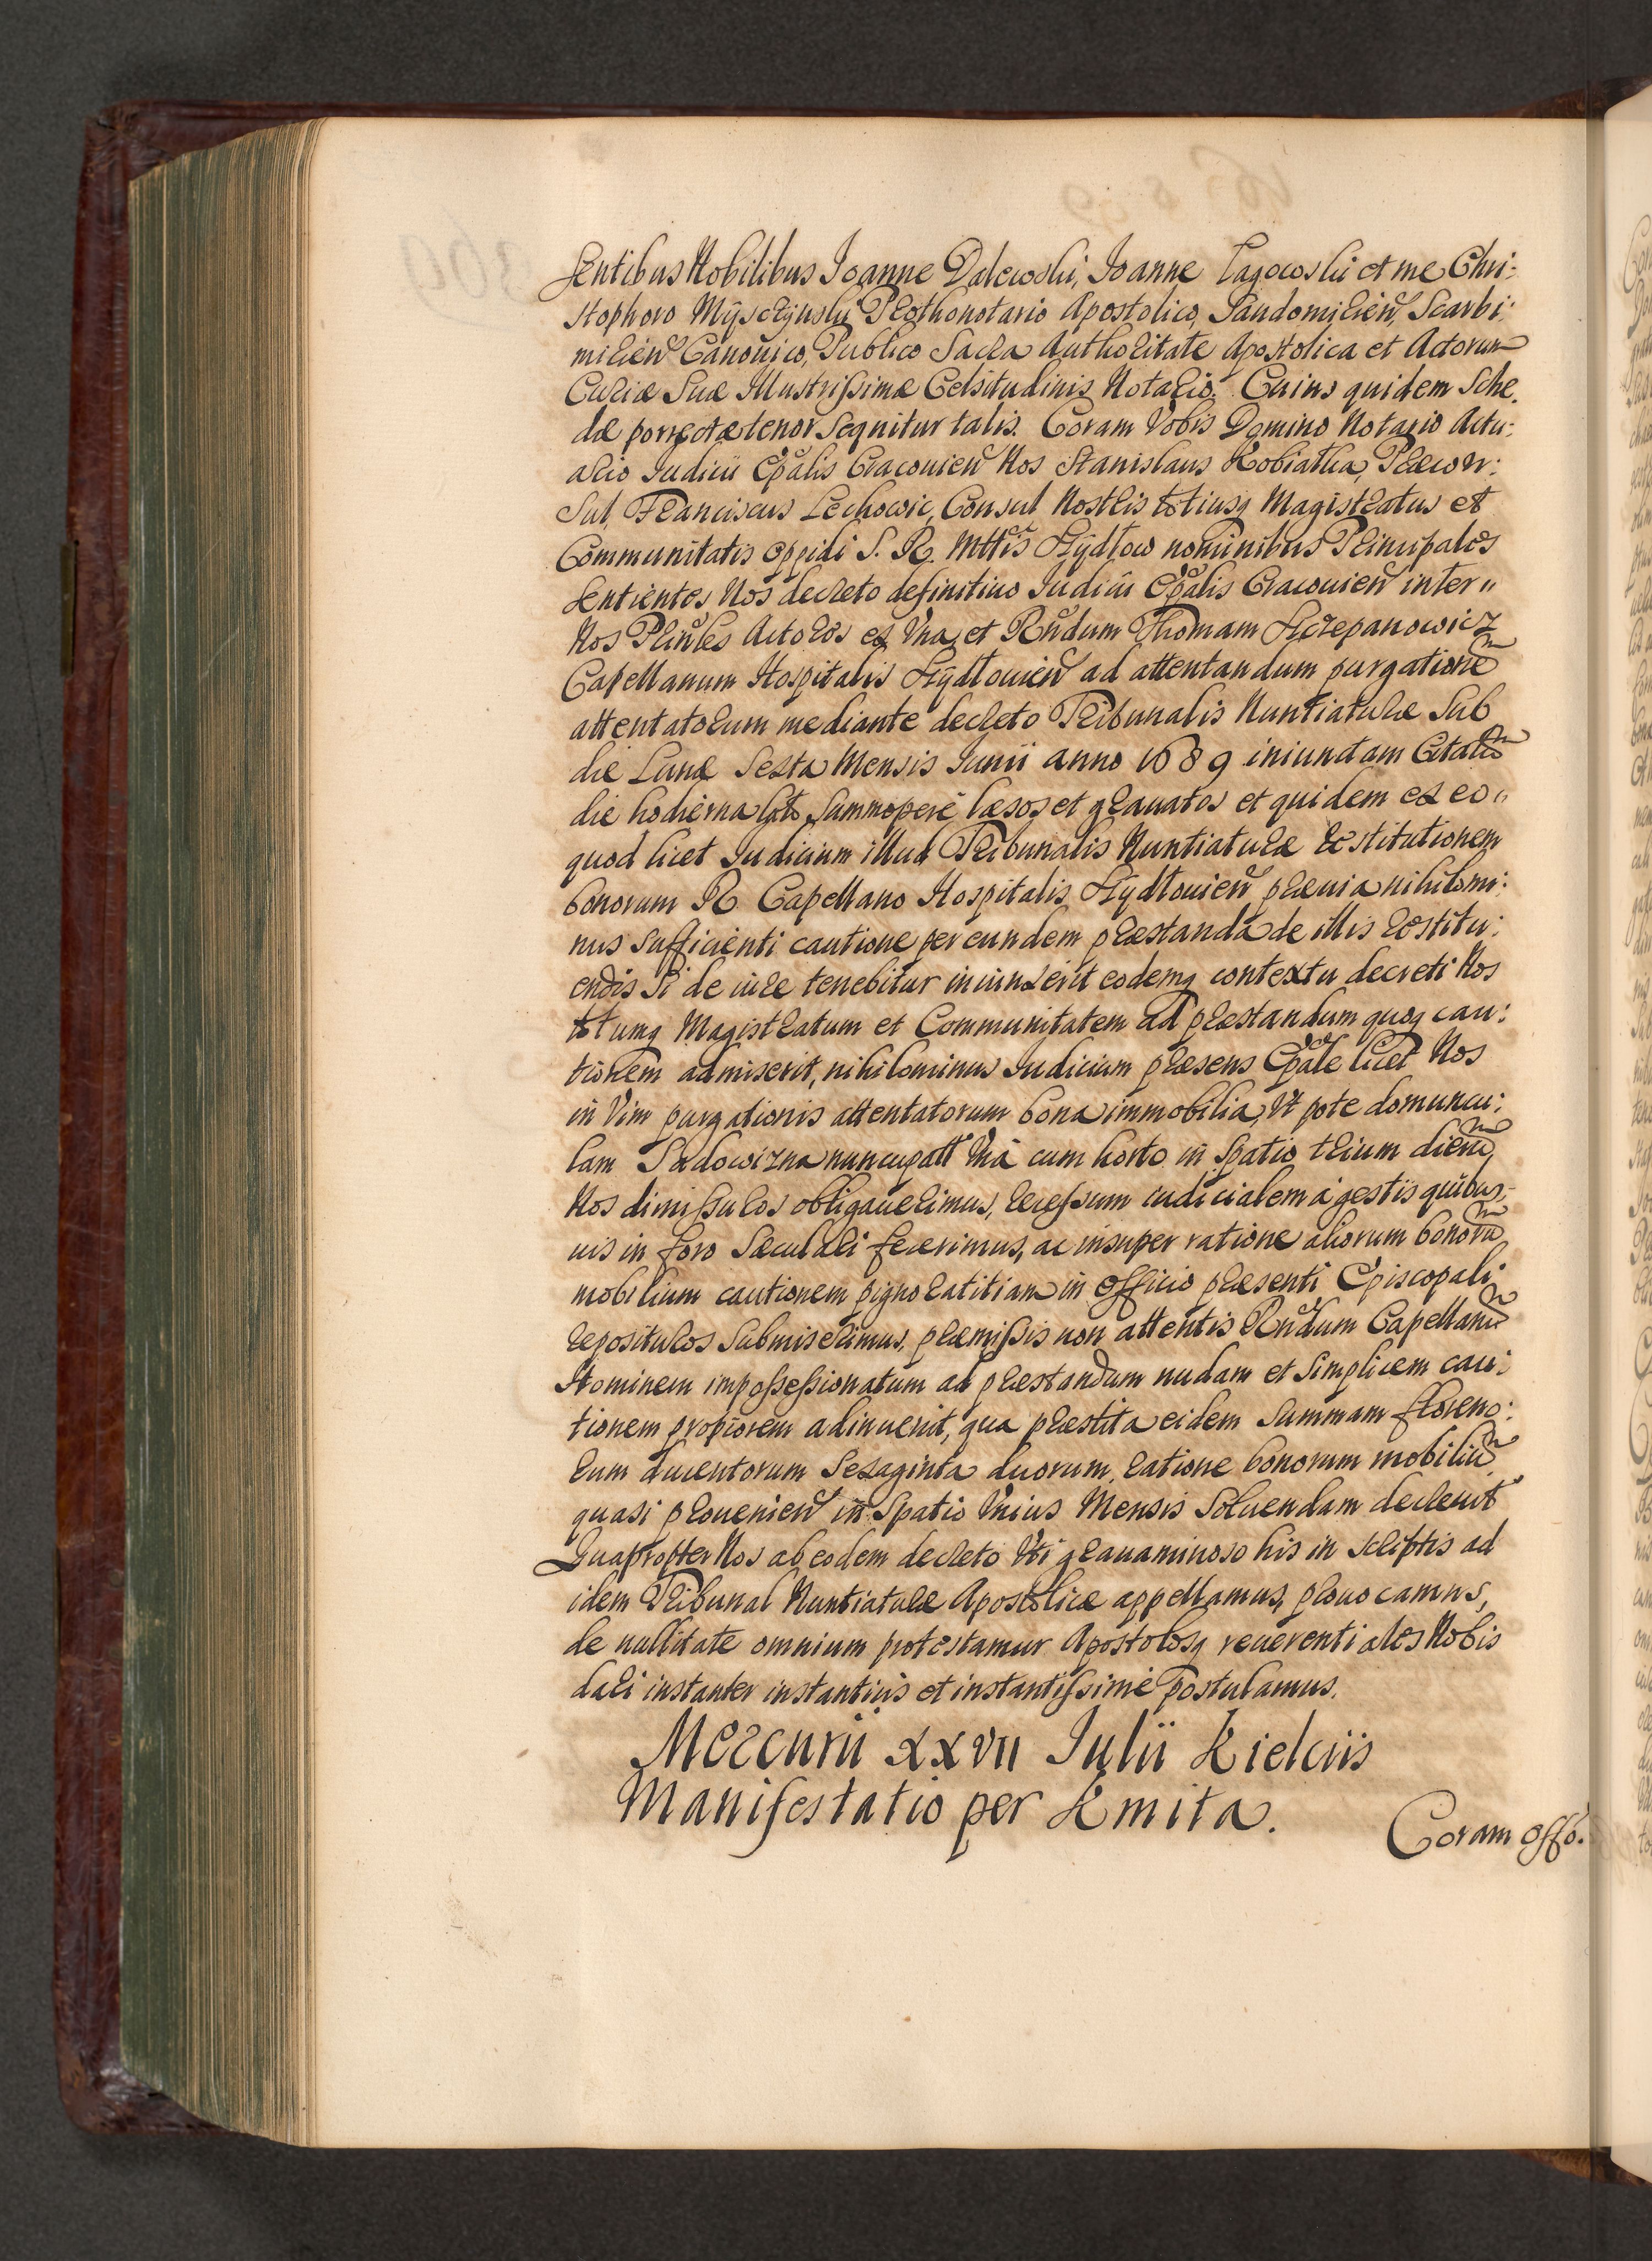 sentibus Nobilibus Joanne Dalewski, Joanne Lagowski et me Chri:
stophoro Mysczynski Prothonotario Apostolico, Sandomirien̄, Scarbi:
mirien̄ Canonico, Publico Sacra Authoritate Apostolica et Actorum
Curiæ Suæ Illustrissimæ Celsitudinis Notario. Cuius quidem Sche.
dæ porrectæ tenor sequitur talis. Coram Vobis Domino Notario Actu:
ario Judicii Ep̄alis Cracouien̄ Nos Stanislaus Kobiałka, Præcon:
sul, Franciscus Lechowic, Consul Nostris totiusq; Magistratus et
Communitatis oppidi S. R. Mttis Szydłow nominibus Principales
sentientes Nos decreto definitiuo Judicii Ep̄alis Cracouien̄ inter "
Nos Prin̄les Actores ex Vna, et Rn̄dum Thomam Szczepanowicz
Capellanum Hospitalis Szydłouien̄ ad attentandum purgationē
attentatorum mediante decreto Tribunalis Nuntiaturæ sub
die Lunæ sexta Mensis Junii anno 1689 iniunctam
die hodierna lato, summopere læsos et grauatos et quidem ex eo "
quod licet Judicium illud Tribunalis Nuntiaturæ restitutionem
bonorum R. Capellano Hospitalis Szydłouien̄ præuia nihilomi:
nus sufficienti cautione per eundem præstanda de illis restitu:
endis si de iure tenebitur iniunxerit eodemq; contextu decreti Nos
totumq; Magistratum et Communitatem ad præstandum quoq; cau:
tionem admiserit, nihilominus Judicium præsens Ep̄ale licet Nos
in Vim purgationis attentatorum bona immobilia, Vt pote domuncu:
lam Sadowizna nuncupatt Vnà cum horto in spatio trium dierū
Nos dimissuros obligauerimus, recessum iudicialem à gestis quibus-
uis in foro sæculari fecerimus, ac insuper ratione aliorum bonorū
mobilium cautionem pignoratitiam in officio præsenti Episcopali
reposituros submiserimus, præmissis non attentis Rn̄dum Capellanū
Hominem impossessionatum ad præstandum nudam et simplicem cau:
tionem propiorem adinuenit, qua præstita eidem summam floreno:
rum ducentorum sexaginta duorum, ratione bonorum mobiliū
quasi prouenien̄ in spatio Vnius Mensis soluendam decreuit
Quapropter Nos ab eodem decreto Vti grauaminoso his in scriptis ad
idem Tribunal Nuntiaturæ Apostolicæ appellamus, prouocamus,
de nullitate omnium protestamur Apostolosq; reuerentiales Nobis
dari instanter instantius et instantissimè postulamus.
Mercurii XXVII Julii Kielciis
Manifestatio per Kmita.
Coram offō.